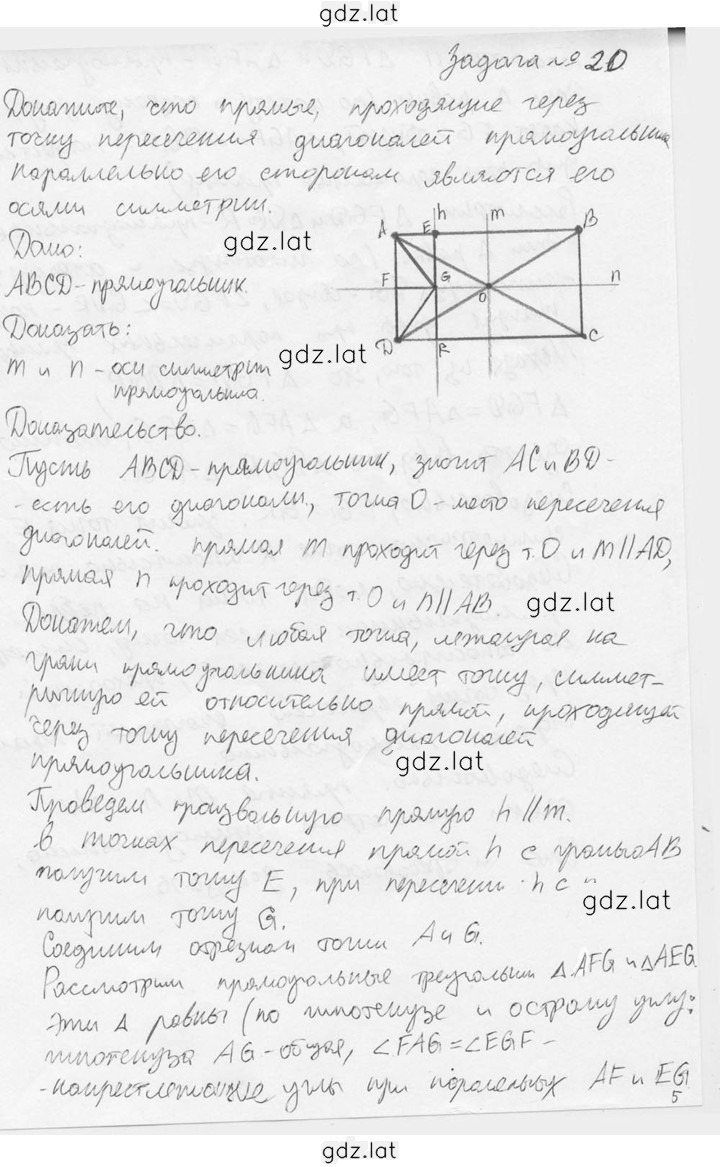 gdz.lat
Задача № 20
Докажите, что прямые, проходящие через
точку пересечения диагоналей прямоугольника
параллельно его сторонам являются его
осями симметрии.
gdz.lat
Дано:
ABCD - прямоугольник.
Доказать:
m и n - оси симметрии
прямоугольника.
A E h m B
F G O n
D R C
gdz.lat
Доказательство.
Пусть ABCD - прямоугольник, значит AC и BD -
- есть его диагонали, тогда O - место пересечения
диагоналей. прямая m проходит через т. O и m || AD,
прямая n проходит через т. O и n || AB.
gdz.lat
Докажем, что любая точка, лежащая на
грани прямоугольника имеет точку, симмет-
ричную ей относительно прямой, проходящей
через точку пересечения диагоналей
прямоугольника.
gdz.lat
Проведем произвольную прямую h || m.
В точках пересечения прямой h с гранью AB
получим точку E, при пересечении h с n
получим точку G.
gdz.lat
Соединим отрезком точки A и G.
Рассмотрим прямоугольные треугольники △AFG и △AEG
Эти △ равны (по гипотенузе и острому углу:
гипотенуза AG - общая, ∠FAG = ∠EGF -
- накрестлежащие углы при параллельных AF и EG
5
gdz.lat